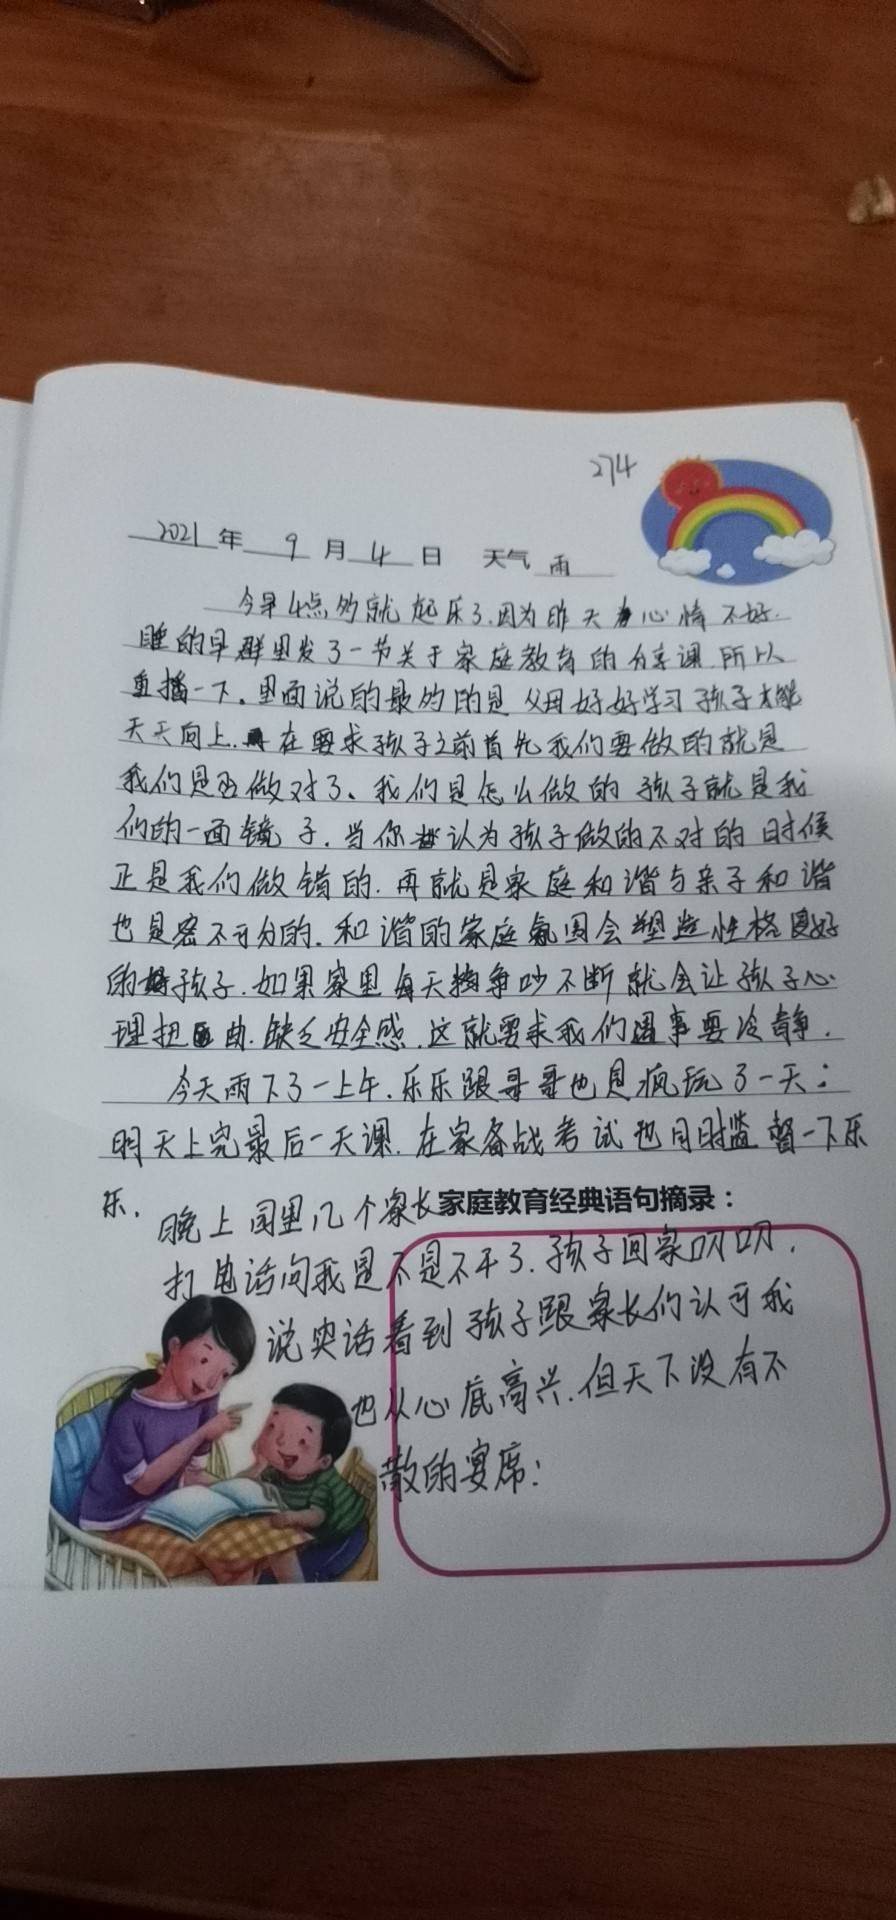 274
2021年9月4日 天气 雨
今早4点多就起床了.因为昨天心情不好.
睡的早群里发了一节关于家庭教育的分享课.所以
重播一下。里面说的最多的是父母好好学习孩子才能
天天向上.在要求孩子之前首先我们要做的就是
我们是否做对了、我们是怎么做的 孩子就是我
们的一面镜子.当你认为孩子做的不对的时候
正是我们做错的.再就是家庭和谐与亲子和谐
也是密不可分的.和谐的家庭氛围会塑造性格良好
的孩子.如果家里每天争吵不断就会让孩子心
理扭曲.缺乏安全感.这就要求我们遇事要冷静.
今天雨下了一上午.乐乐跟哥哥也是疯玩了一天;
明天上完最后一天课.在家备战考试也同时监督一下乐
乐.
晚上园里几个家长
家庭教育经典语句摘录：
打电话问我是不是不干了.孩子回家叨叨.
说实话看到孩子跟家长们认可我
也从心底高兴.但天下没有不
散的宴席!